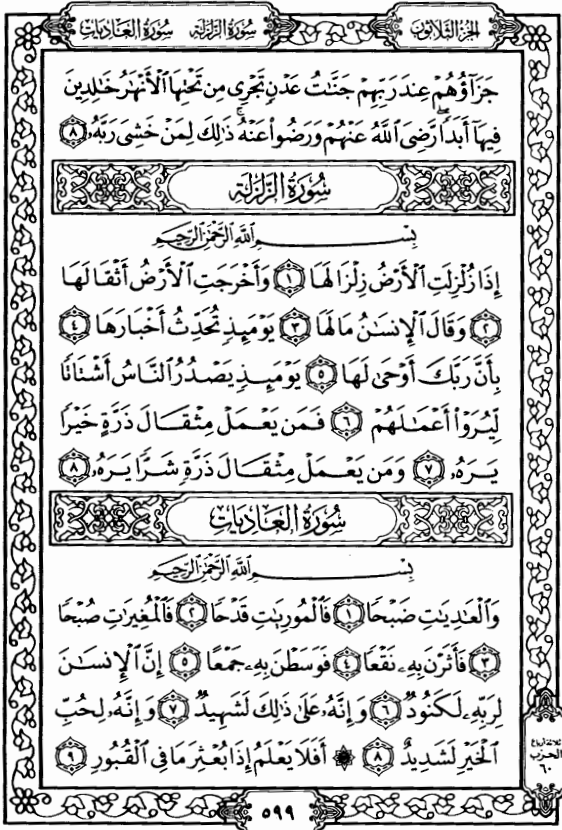 الجزء الثلاثون
سورة الزلزلة سورة العاديات
جَزَآؤُهُمْ عِندَ رَبِّهِمْ جَنَّـٰتُ عَدْنٍ تَجْرِى مِن تَحْتِهَا ٱلْأَنْهَـٰرُ خَـٰلِدِينَ
فِيهَآ أَبَدًا ۖ رَّضِىَ ٱللَّهُ عَنْهُمْ وَرَضُوا۟ عَنْهُ ۚ ذَٰلِكَ لِمَنْ خَشِىَ رَبَّهُۥ ٨
سورة الزلزلة
بِسْمِ ٱللَّهِ ٱلرَّحْمَـٰنِ ٱلرَّحِيمِ
إِذَا زُلْزِلَتِ ٱلْأَرْضُ زِلْزَالَهَا ١ وَأَخْرَجَتِ ٱلْأَرْضُ أَثْقَالَهَا
٢ وَقَالَ ٱلْإِنسَـٰنُ مَا لَهَا ٣ يَوْمَئِذٍ تُحَدِّثُ أَخْبَارَهَا ٤
بِأَنَّ رَبَّكَ أَوْحَىٰ لَهَا ٥ يَوْمَئِذٍ يَصْدُرُ ٱلنَّاسُ أَشْتَاتًا
لِّيُرَوْا۟ أَعْمَـٰلَهُمْ ٦ فَمَن يَعْمَلْ مِثْقَالَ ذَرَّةٍ خَيْرًا
يَرَهُۥ ٧ وَمَن يَعْمَلْ مِثْقَالَ ذَرَّةٍ شَرًّا يَرَهُۥ ٨
سورة العاديات
بِسْمِ ٱللَّهِ ٱلرَّحْمَـٰنِ ٱلرَّحِيمِ
وَٱلْعَـٰدِيَـٰتِ ضَبْحًا ١ فَٱلْمُورِيَـٰتِ قَدْحًا ٢ فَٱلْمُغِيرَٰتِ صُبْحًا
٣ فَأَثَرْنَ بِهِۦ نَقْعًا ٤ فَوَسَطْنَ بِهِۦ جَمْعًا ٥ إِنَّ ٱلْإِنسَـٰنَ
لِرَبِّهِۦ لَكَنُودٌ ٦ وَإِنَّهُۥ عَلَىٰ ذَٰلِكَ لَشَهِيدٌ ٧ وَإِنَّهُۥ لِحُبِّ
ٱلْخَيْرِ لَشَدِيدٌ ٨ ۞ أَفَلَا يَعْلَمُ إِذَا بُعْثِرَ مَا فِى ٱلْقُبُورِ ٩
ثلاثة أرباع
الحزب
٦٠
٥٩٩